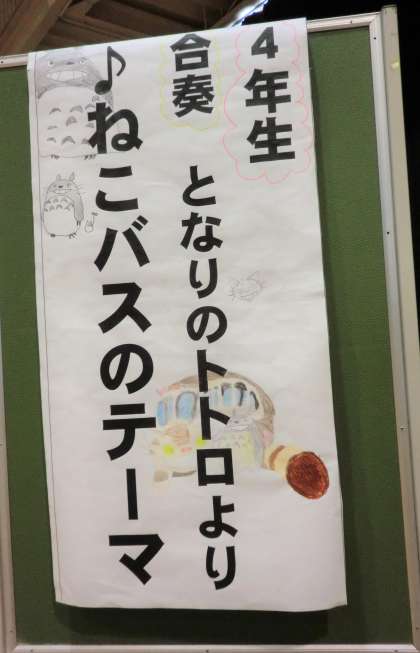 4年生
合奏 となりのトトロより
♪ねこバスのテーマ